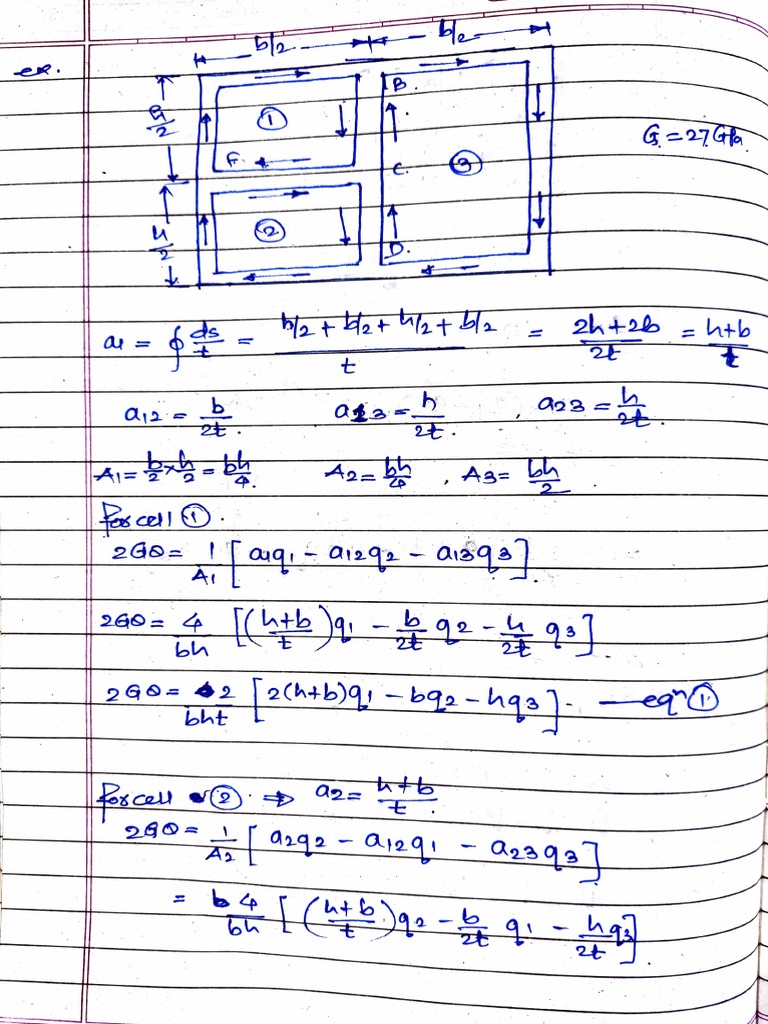 b/2 b/2
ex.
h/2 ① B. G = 27 GPa.
F. C. ③
h/2 ②
D.
a1 = ∮ ds/t = (h/2 + b/2 + h/2 + b/2)/t = (2h+2b)/2t = (h+b)/t
a12 = b/2t. a13 = h/2t. , a23 = h/2t.
A1 = b/2 × h/2 = bh/4. A2 = bh/4 , A3 = bh/2
For cell ①.
2Gθ = 1/A1 [a1q1 - a12q2 - a13q3].
2Gθ = 4/bh [((h+b)/t)q1 - b/2t q2 - h/2t q3].
2Gθ = 2/bht [2(h+b)q1 - bq2 - hq3]. — eqⁿ ①
For cell ② ⇒ a2 = (h+b)/t.
2Gθ = 1/A2 [a2q2 - a12q1 - a23q3]
= 4/bh [((h+b)/t)q2 - b/2t q1 - hq3/2t]